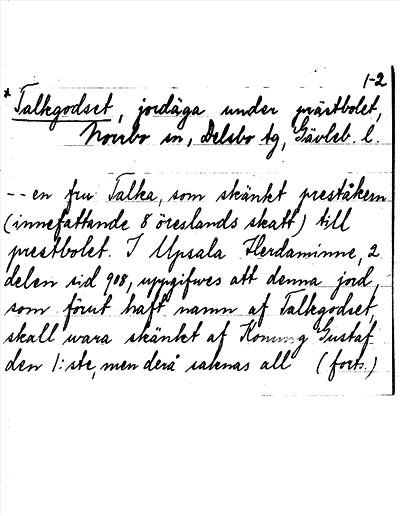 1-2
* Talkgodset, jordäga under prästbolet,
Norrbo sn, Delsbo tg, Gävleb. l.
-- en fru Talka, som skänkt preståkern
(innefattande 8 öreslands skatt) till
prestbolet. I Upsala Herdaminne, 2
delen sid 908, uppgifwes att denna jord,
som förut haft namn af Talkgodset,
skall wara skänkt af Konung Gustaf
den 1:ste, men derå saknas all (forts.)